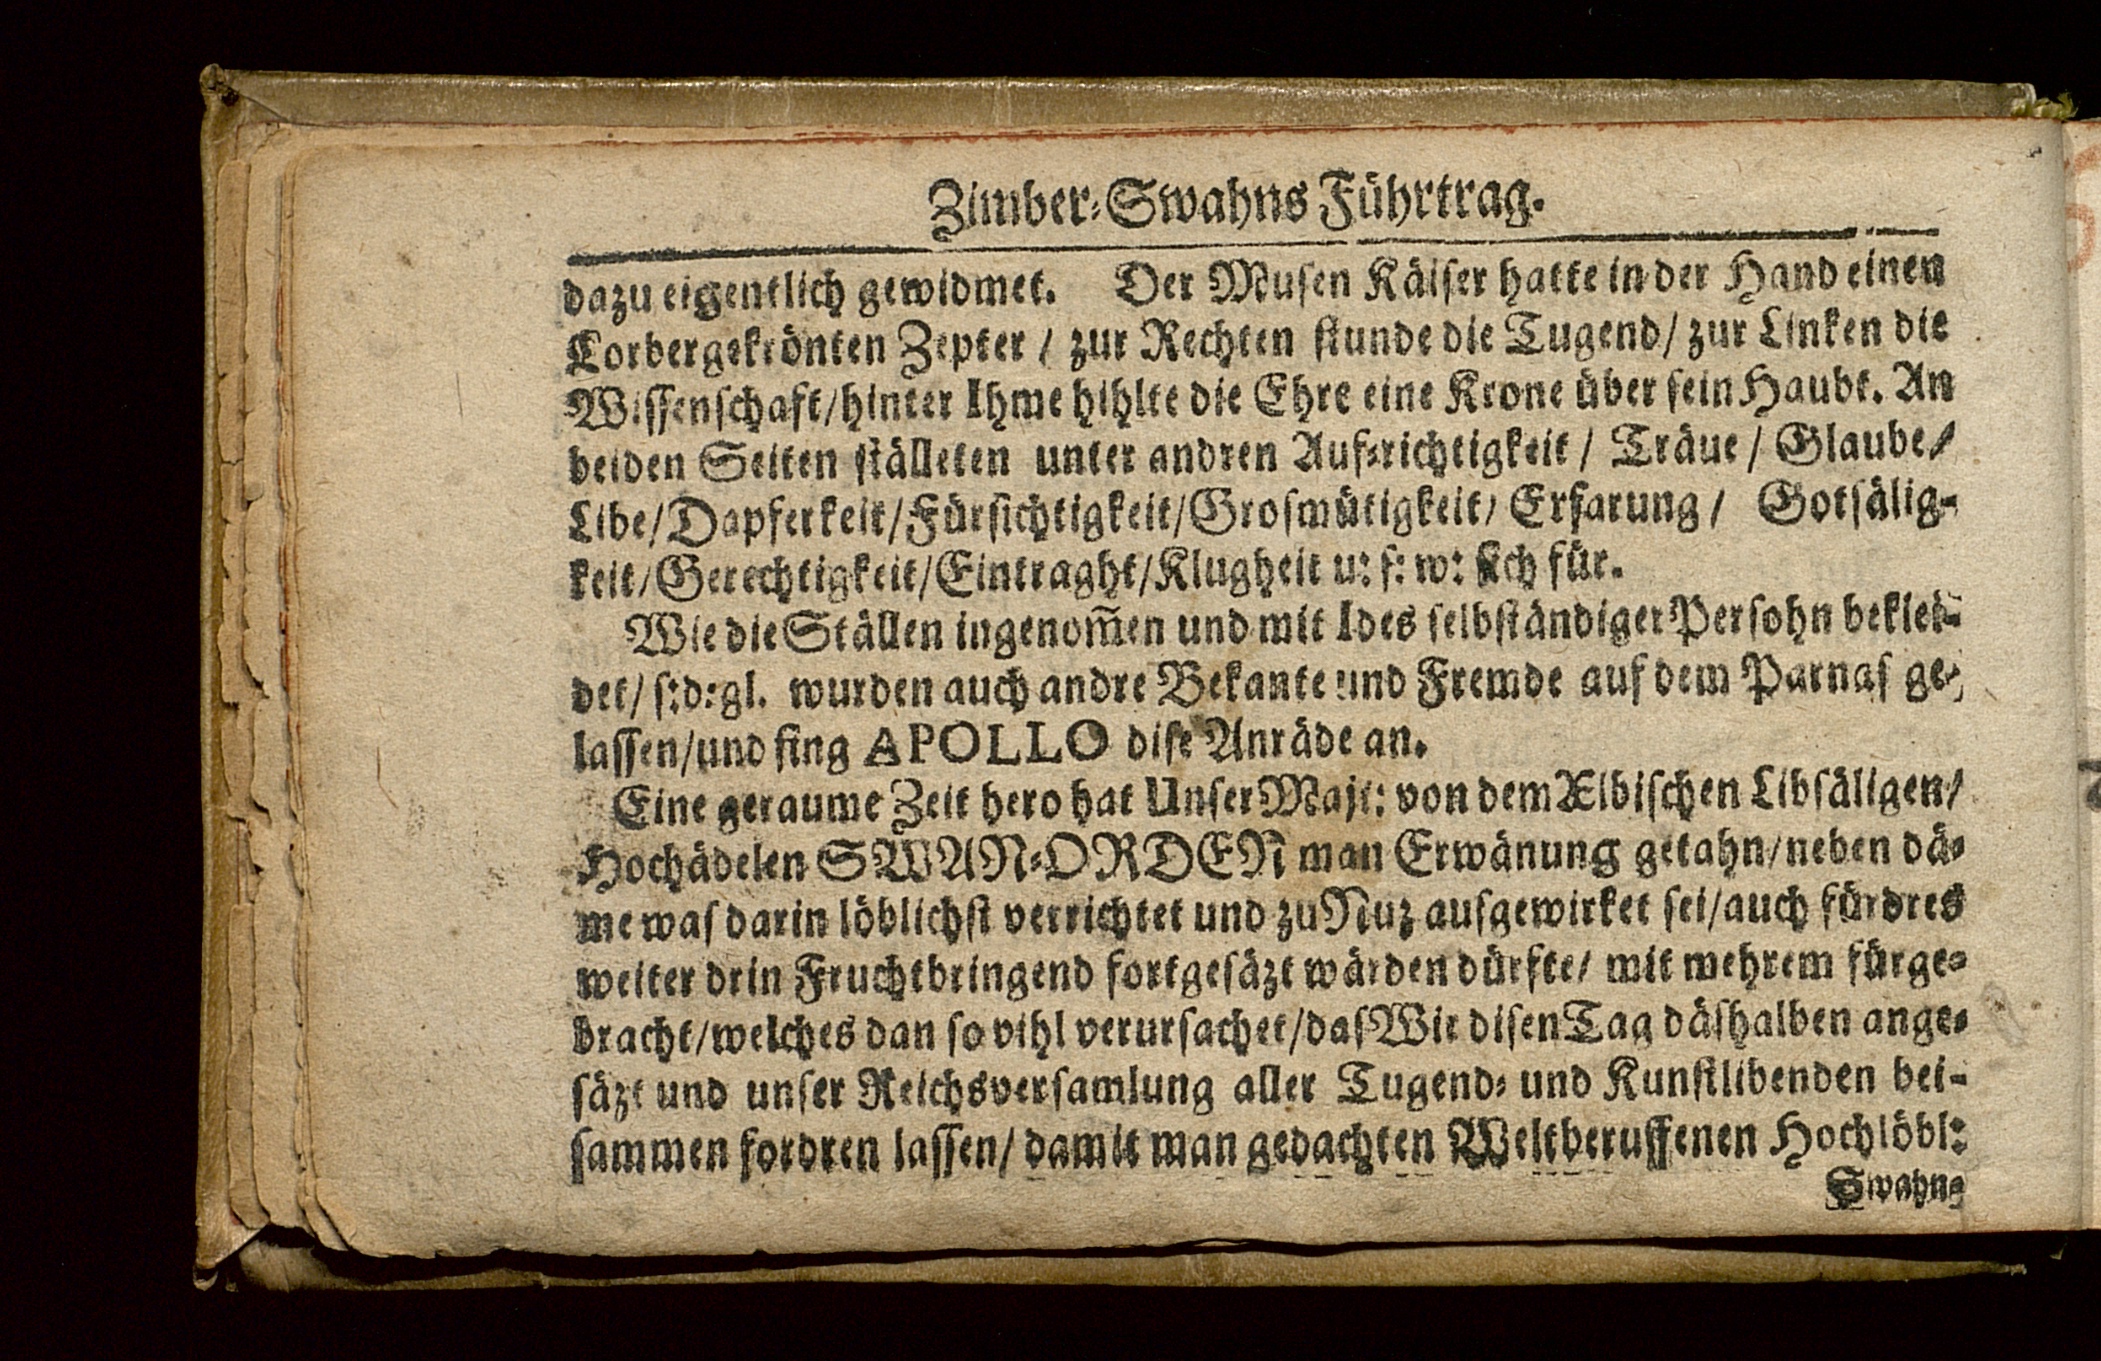 Zimber-Swahns Führtrag.
dazu eigentlich gewidmet. Der Musen Käiser hatte in der Hand einen
Lorbergekrönten Zepter / zur Rechten stunde die Tugend / zur Linken die
Wissenschaft / hinter Ihme hihlte die Ehre eine Krone über sein Haubt. An
beiden Seiten ställeten unter andren Auf-richtigkeit / Träue / Glaube /
Libe / Dapferkeit / Fürsichtigkeit / Grosmütigkeit / Erfarung / Gotsälig-
keit / Gerechtigkeit / Eintraght / Klugheit u: s: w: sich für.
Wie die Ställen ingenom̃en und mit Ides selbständiger Persohn beklei-
det / s: d: gl. wurden auch andre Bekante und Fremde auf dem Parnas ge-
lassen / und fing APOLLO dise Anräde an.
Eine geraume Zeit hero hat Unser Majt: von dem Ælbischen Libsäligen /
Hochädelen SWAN-ORDEN man Erwänung getahn / neben dä-
me was darin löblichst verrichtet und zu Nuz ausgewirket sei / auch fürdres
weiter drin Fruchtbringend fortgesäzt wärden dürfte / mit mehrem fürge-
bracht / welches dan so vihl verursachet / das Wir disen Tag däshalben ange-
säzt und unser Reichsversamlung aller Tugend- und Kunstlibenden bei-
sammen fordren lassen / damit man gedachten Weltberuffenen Hochlöbl:
Swahn-